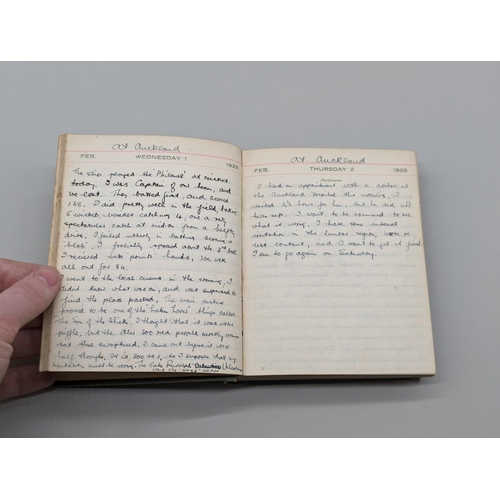 at Auckland
FEB. WEDNESDAY 1 1928
The ship played the 'Philomel' at cricket
today. I was Captain of our team, and
we lost. They batted first, and scored
138. I did pretty well in the field, taking
5 wickets, besides catching 4, one a very
spectacular catch at mid on from a
drive. I failed utterly in batting
"blob". I foolishly about the 2nd ball
I received into hands, we were
all out for 84.
I went to the local cinema in the evening, I
didn't know what was on, and was surprised to
find the place packed. The main picture
proved to be one of the things called
The Son of the Sheik, I thought that it was utter
piffle, but the other 200 odd people
sat thro enraptured. I came out before it was
half through. It is 200 to 1, so I suppose that my
must be wrong. The late Rudolph
was the
at Auckland
FEB. THURSDAY 2 1928
Purification
I had an appointment with a doctor at
the Auckland Hospital this morning. I
waited hour for him, but he did not
turn up. I want to be examined to see
what is wrong, I have some internal
irritation in the lumbar region, more or
less constant, and I want to get it fixed
I am to go again on Saturday.